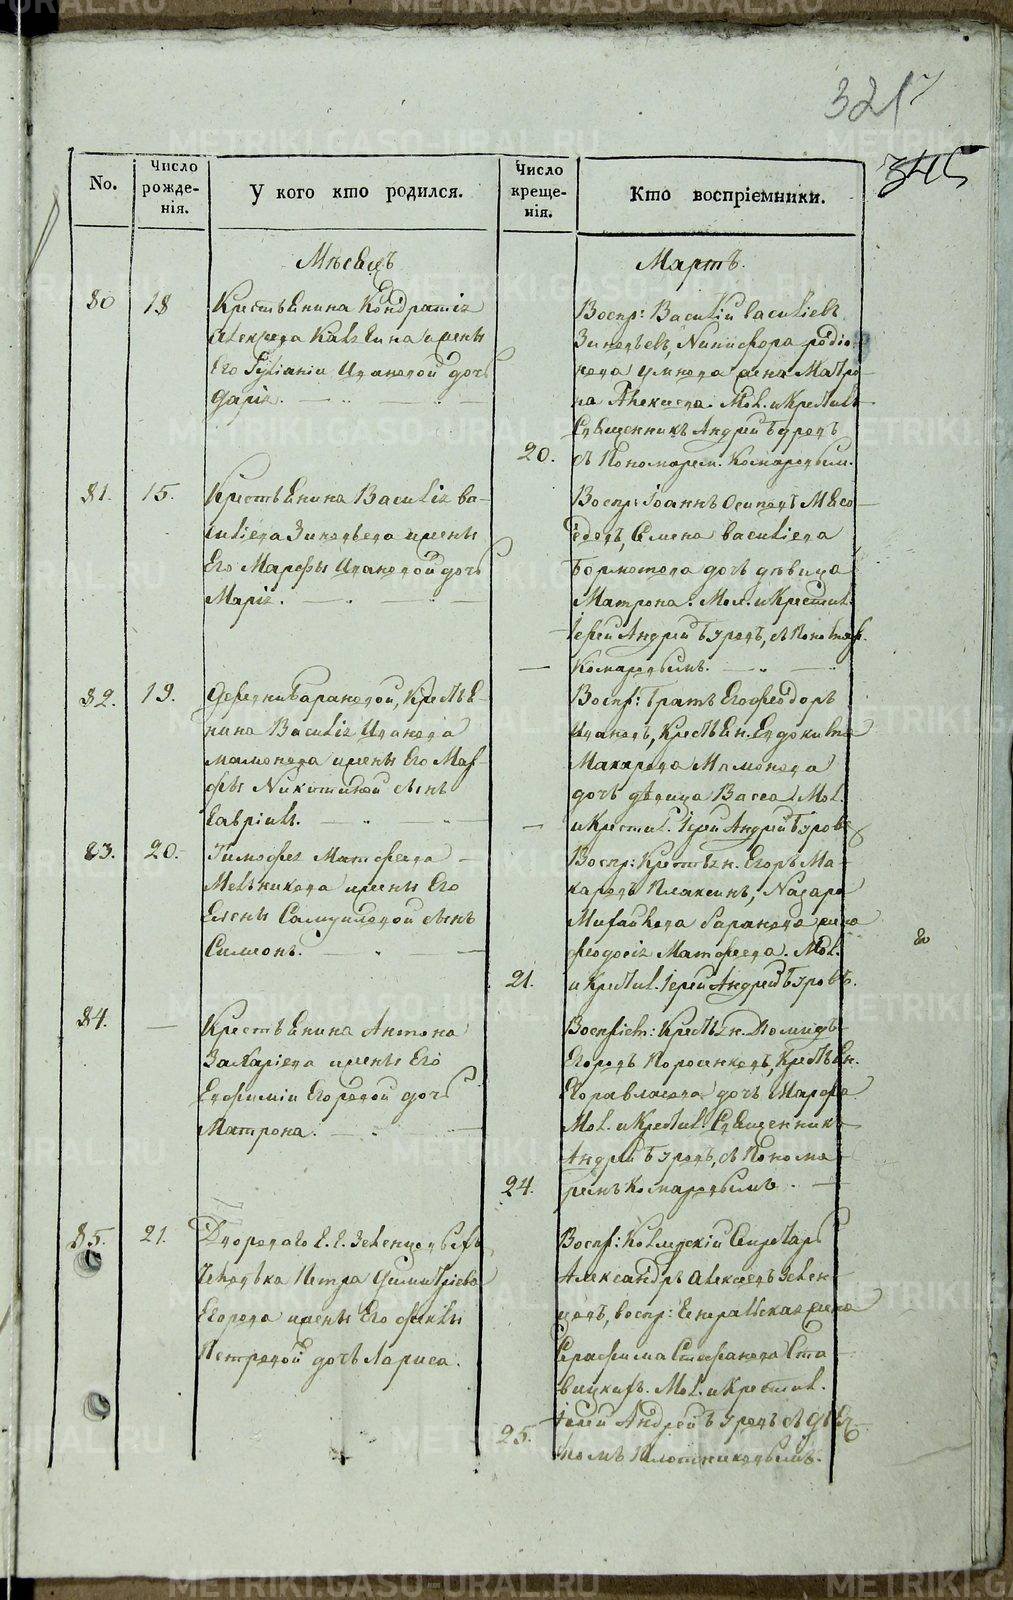 321
345
No.
Число рожде-нія.
У кого кто родился.
Число креще-нія.
Кто воспріемники.
Мѣсяцъ
Мартъ.
80
18
Крестьянина Кондратія
жены
Его Іуліаніи Ивановой дочь
Дарія.
20.
Воспр: Василій Васильевъ
Зиновьевъ, Никифора Родіо-
нова жена Матро-
на Алексѣева. Мол. и Крестилъ
Священникъ Андрей Буровъ
съ Пономарем. Комаровым.
81.
15.
Крестьянина Василія Ва-
сильева Зиновьева жены
Его Марфы Ивановой дочь
Марія.
Воспр: Іоаннъ Осиповъ Мясо-
едовъ, Семена Васильева
Бормотова дочь дѣвица
Матрона. Мол. и Крестил.
Іерей Андрей Буровъ, съ Пономар.
Комаровымъ.
82.
19.
Деревни Барановой, Крестья-
нина Василія Иванова
Мамонова жены Его Мар-
фы Никитиной сынъ
Гавріилъ.
Воспр: братъ Его Феодоръ
Ивановъ, Крестьян. Евдокима
Макарова Мамонова
дочь дѣвица Васса. Мол.
и Крестил. Іерей Андрей Буровъ
83.
20.
Тимофея Матфеева
Мельникова жены Его
Елены Самуиловой сынъ
Симеонъ.
21.
Воспр: Крестьян. Егоръ Ма-
каровъ Плаксинъ, Назара
Михайлова Баранова жена
Феодосія Матфеева. Мол.
и Крестил. Іерей Андрей Буровъ.
84.
Крестьянина Антона
Захаріева жены Его
Евфиміи Егоровой дочь
Матрона.
24.
Воспріем: Крестьян. Діомидъ
Егоровъ Поросенковъ, Крестьян.
Егора Власова дочь Марфа
Мол. и Крестил. Священникъ
Андрей Буровъ, съ Понома-
ремъ Комаровымъ.
85.
21.
Двороваго Г. Г. Зеленцовыхъ
Человѣка Петра Димитріева
Егорова жены Его Феклы
Петровой дочь Лариса.
25.
Воспр: Колледскій Секретарь
Александръ Алексеевъ Зелен-
цовъ, воспр: Генеральская жена
Серафима Стефанова Ста-
вицкихъ. Мол. и Крестил.
Іерей Андрей Буровъ съ Дьяч-
комъ Плотниковымъ.
METRIKI.GASO-URAL.RU